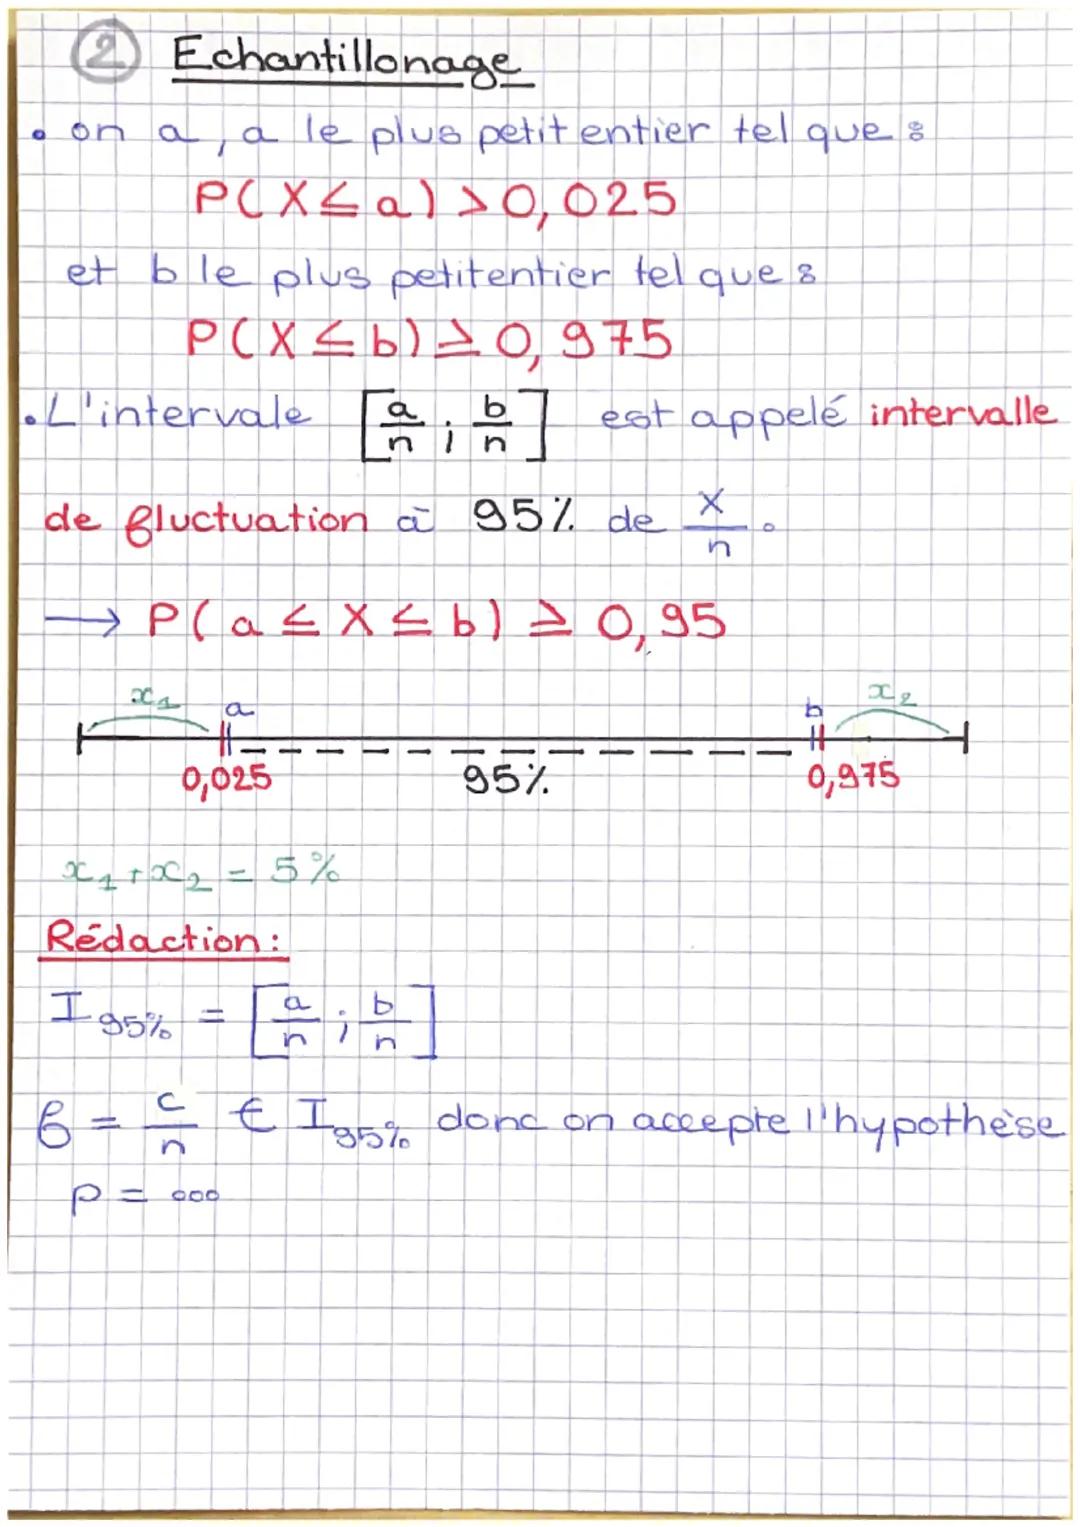 2 Echantillonage
• on a, a le plus petit entier tel que :
P(X ≤ a) > 0,025
et b le plus petit entier tel que :
P(X ≤ b) ≥ 0,975
• L'intervale [a/n ; b/n] est appelé intervalle
de fluctuation à 95% de X/n.
→ P(a ≤ X ≤ b) ≥ 0,95
x₁ a b x₂
0,025 95% 0,975
x₁ + x₂ = 5%
Rédaction :
I 95% = [a/n ; b/n]
f = c/n ∈ I 95% donc on accepte l'hypothèse
p = ...